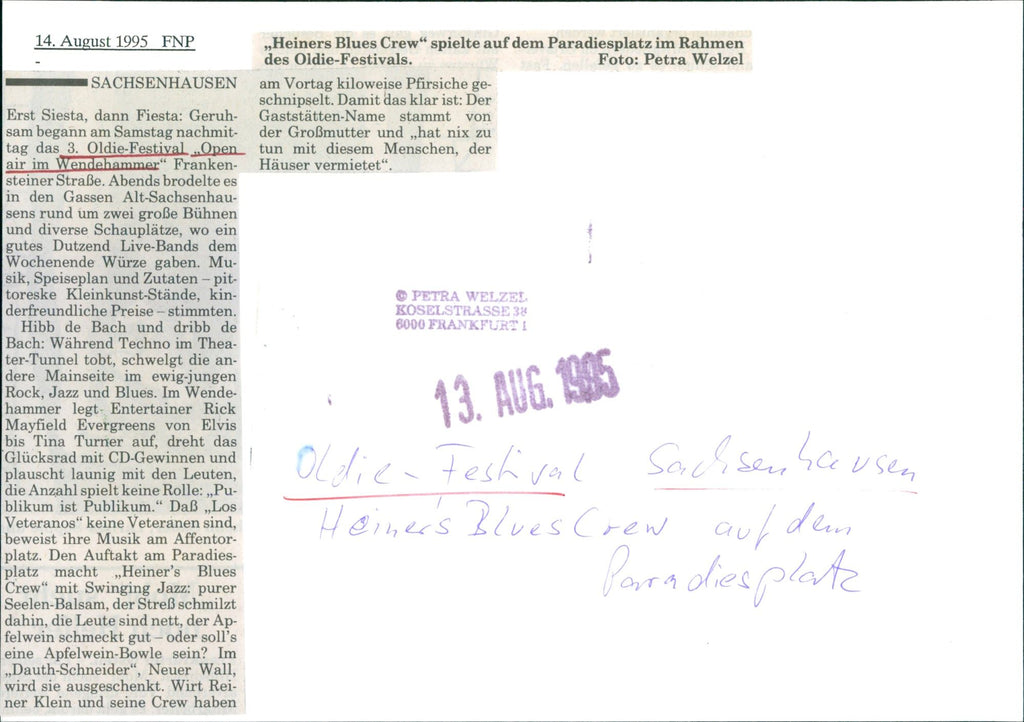 14. August 1995 FNP
-
„Heiners Blues Crew“ spielte auf dem Paradiesplatz im Rahmen
des Oldie-Festivals. Foto: Petra Welzel
SACHSENHAUSEN
Erst Siesta, dann Fiesta: Geruh-
sam begann am Samstag nachmit-
tag das 3. Oldie-Festival „Open
air im Wendehammer“ Franken-
steiner Straße. Abends brodelte es
in den Gassen Alt-Sachsenhau-
sens rund um zwei große Bühnen
und diverse Schauplätze, wo ein
gutes Dutzend Live-Bands dem
Wochenende Würze gaben. Mu-
sik, Speiseplan und Zutaten – pit-
toreske Kleinkunst-Stände, kin-
derfreundliche Preise – stimmten.
Hibb de Bach und dribb de
Bach: Während Techno im Thea-
ter-Tunnel tobt, schwelgt die an-
dere Mainseite im ewig-jungen
Rock, Jazz und Blues. Im Wende-
hammer legt Entertainer Rick
Mayfield Evergreens von Elvis
bis Tina Turner auf, dreht das
Glücksrad mit CD-Gewinnen und
plauscht launig mit den Leuten,
die Anzahl spielt keine Rolle: „Pu-
blikum ist Publikum.“ Daß „Los
Veteranos“ keine Veteranen sind,
beweist ihre Musik am Affentor-
platz. Den Auftakt am Paradies-
platz macht „Heiner's Blues
Crew“ mit Swinging Jazz: purer
Seelen-Balsam, der Streß schmilzt
dahin, die Leute sind nett, der Ap-
felwein schmeckt gut – oder soll's
eine Apfelwein-Bowle sein? Im
„Dauth-Schneider“, Neuer Wall,
wird sie ausgeschenkt. Wirt Rei-
ner Klein und seine Crew haben
am Vortag kiloweise Pfirsiche ge-
schnipselt. Damit das klar ist: Der
Gaststätten-Name stammt von
der Großmutter und „hat nix zu
tun mit diesem Menschen, der
Häuser vermietet“.
© PETRA WELZEL
KOSELSTRASSE 38
6000 FRANKFURT 1
13. AUG. 1995
Oldie-Festival Sachsenhausen
Heiner's Blues Crew auf dem
Paradiesplatz